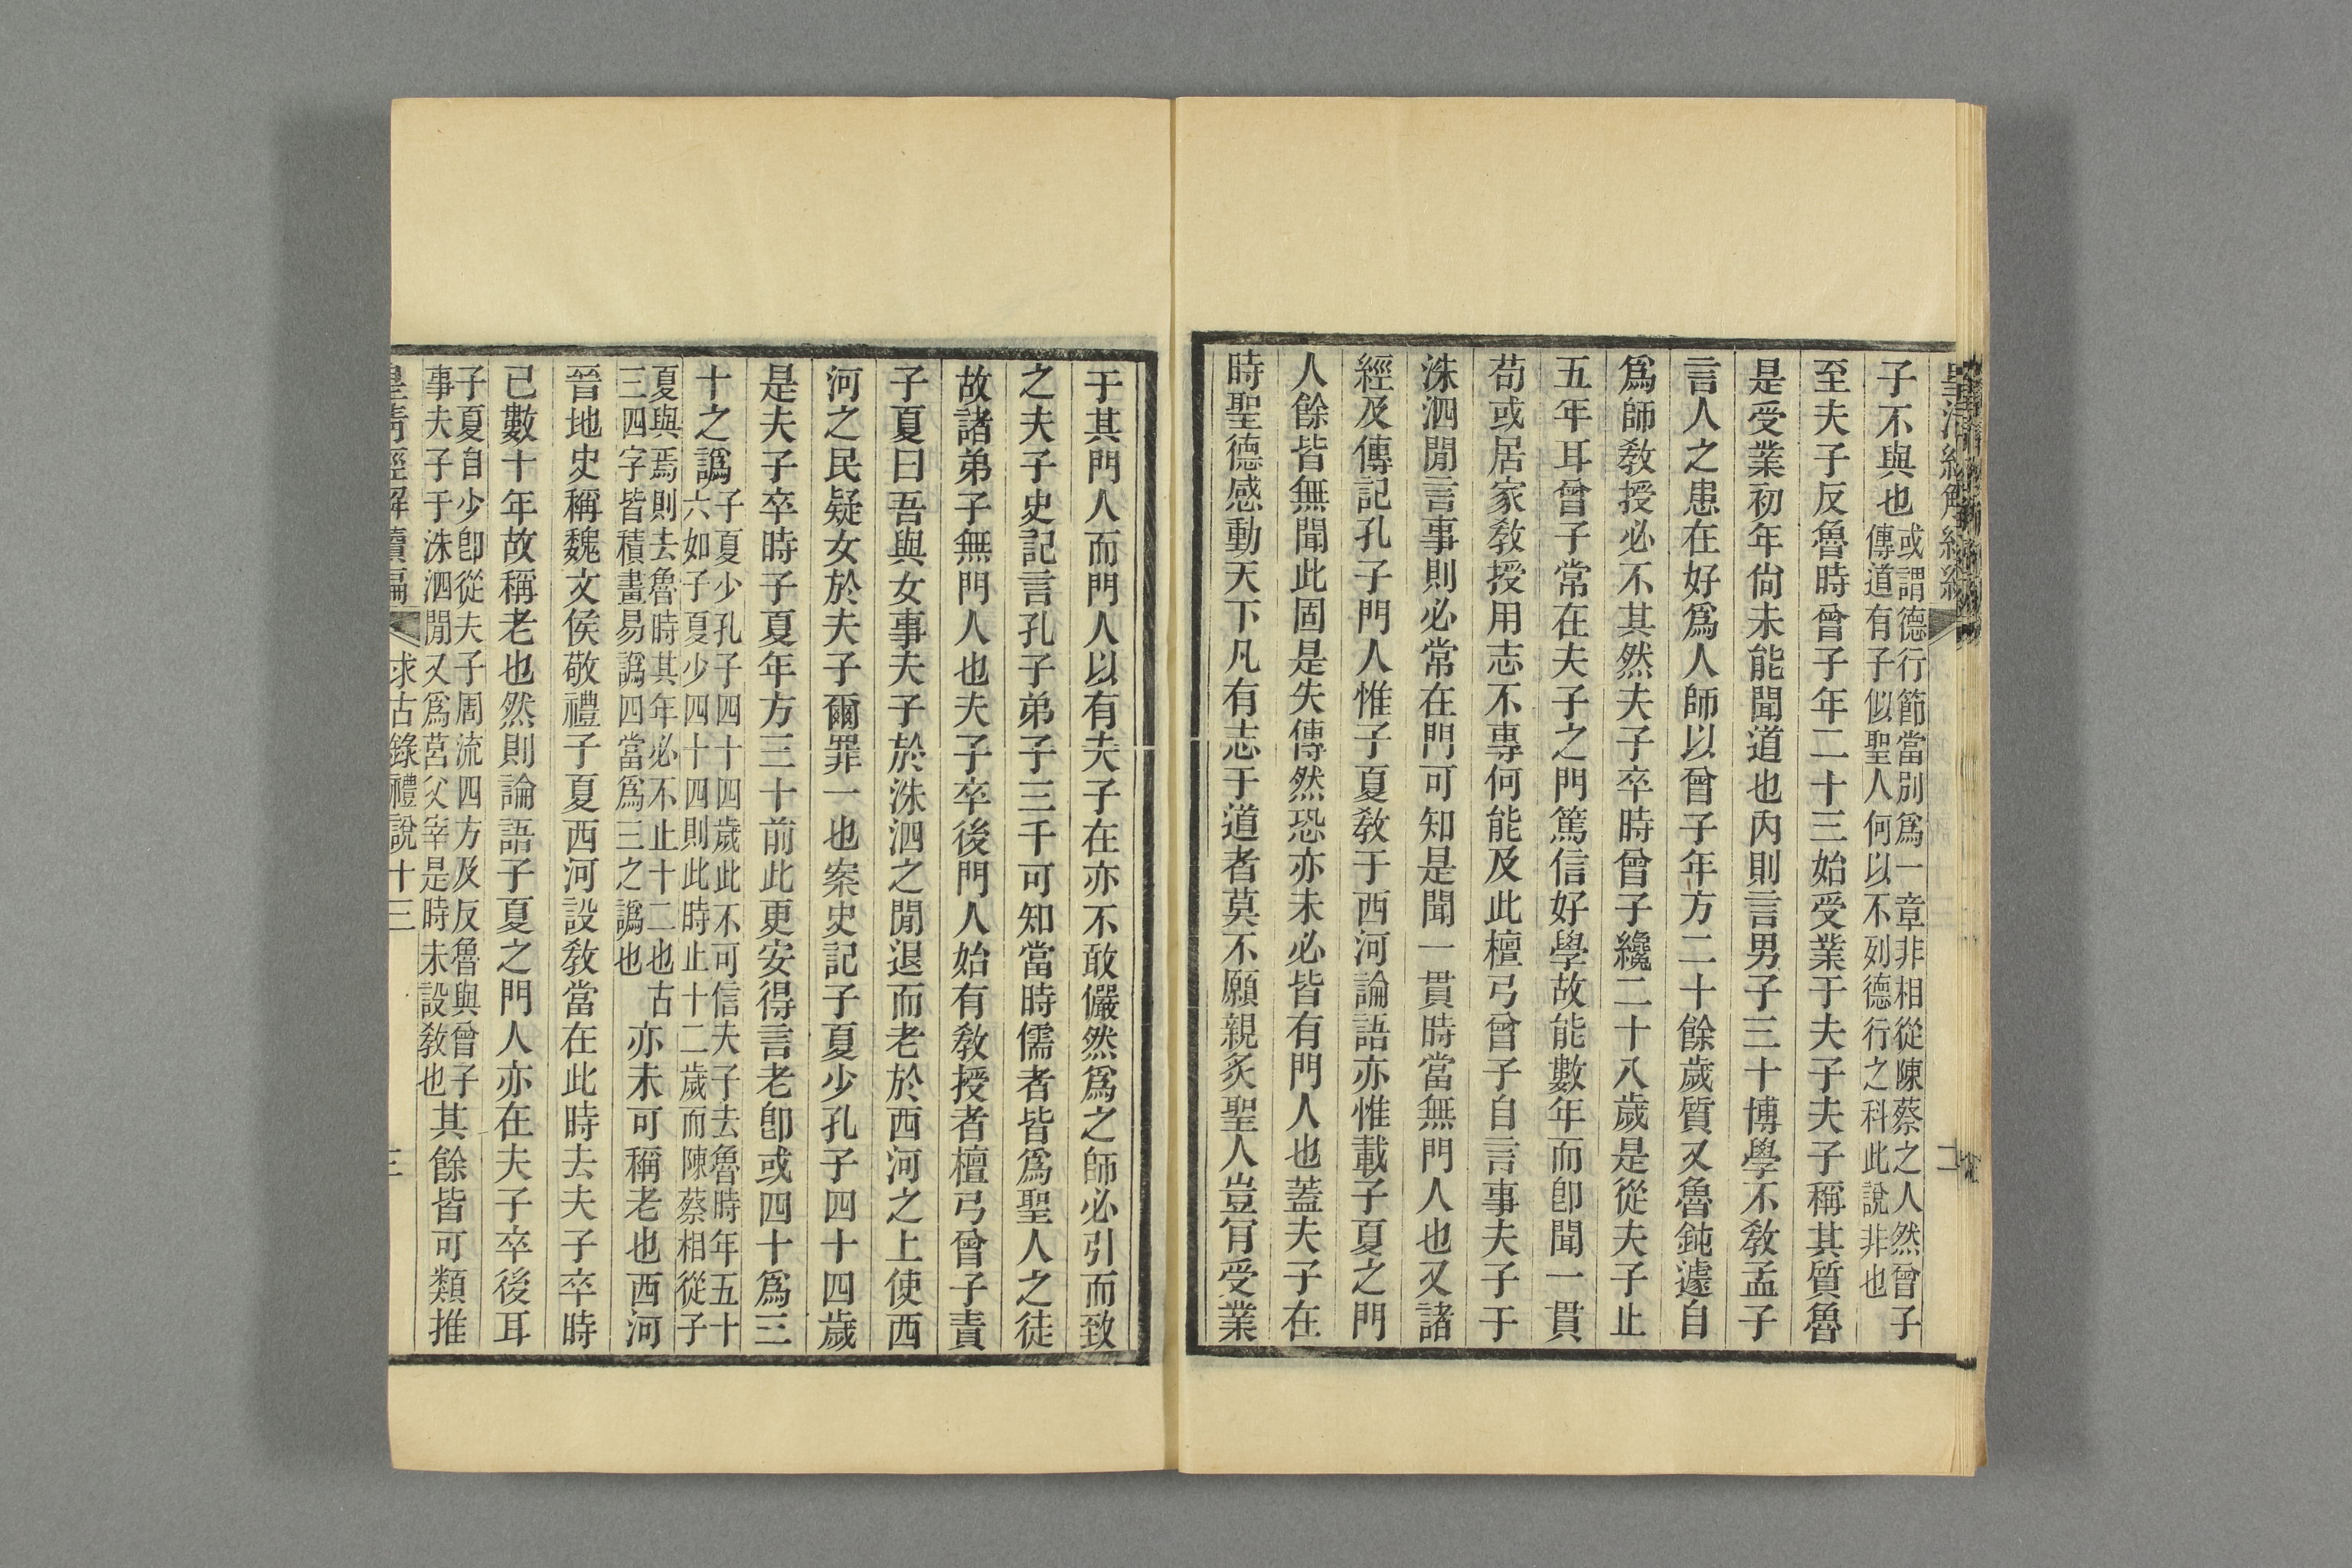 子不與也或謂德行節當別爲一章非相從陳蔡之人然曾子傳道有子似聖人何以不列德行之科此說非也
至夫子反魯時曾子年二十三始受業于夫子夫子稱其質魯
是受業初年尙未能聞道也內則言男子三十博學不敎孟子
言人之患在好爲人師以曾子年方二十餘歲質又魯鈍遽自
爲師敎授必不其然夫子卒時曾子纔二十八歲是從夫子止
五年耳曾子常在夫子之門篤信好學故能數年而卽聞一貫
苟或居家敎授用志不專何能及此檀弓曾子自言事夫子于
洙泗閒言事則必常在門可知是聞一貫時當無門人也又諸
經及傳記孔子門人惟子夏敎于西河論語亦惟載子夏之門
人餘皆無聞此固是失傳然恐亦未必皆有門人也蓋夫子在
時聖德感動天下凡有志于道者莫不願親炙聖人豈肎受業
于其門人而門人以有夫子在亦不敢儼然爲之師必引而致
之夫子史記言孔子弟子三千可知當時儒者皆爲聖人之徒
故諸弟子無門人也夫子卒後門人始有敎授者檀弓曾子責
子夏曰吾與女事夫子於洙泗之閒退而老於西河之上使西
河之民疑女於夫子爾罪一也案史記子夏少孔子四十四歲
是夫子卒時子夏年方三十前此更安得言老卽或四十爲三
十之譌子夏少孔子四十四歲此不可信夫子去魯時年五十六如子夏少四十四則此時止十二歲而陳蔡相從子
夏與焉則去魯時其年必不止十二也古三四字皆積畫易譌四當爲三之譌也亦未可稱老也西河
晉地史稱魏文侯敬禮子夏西河設敎當在此時去夫子卒時
已數十年故稱老也然則論語子夏之門人亦在夫子卒後耳
子夏自少卽從夫子周流四方及反魯與曾子事夫子于洙泗閒又爲莒父宰是時未設敎也其餘皆可類推
皇清經解續編 求古錄禮說十三 三